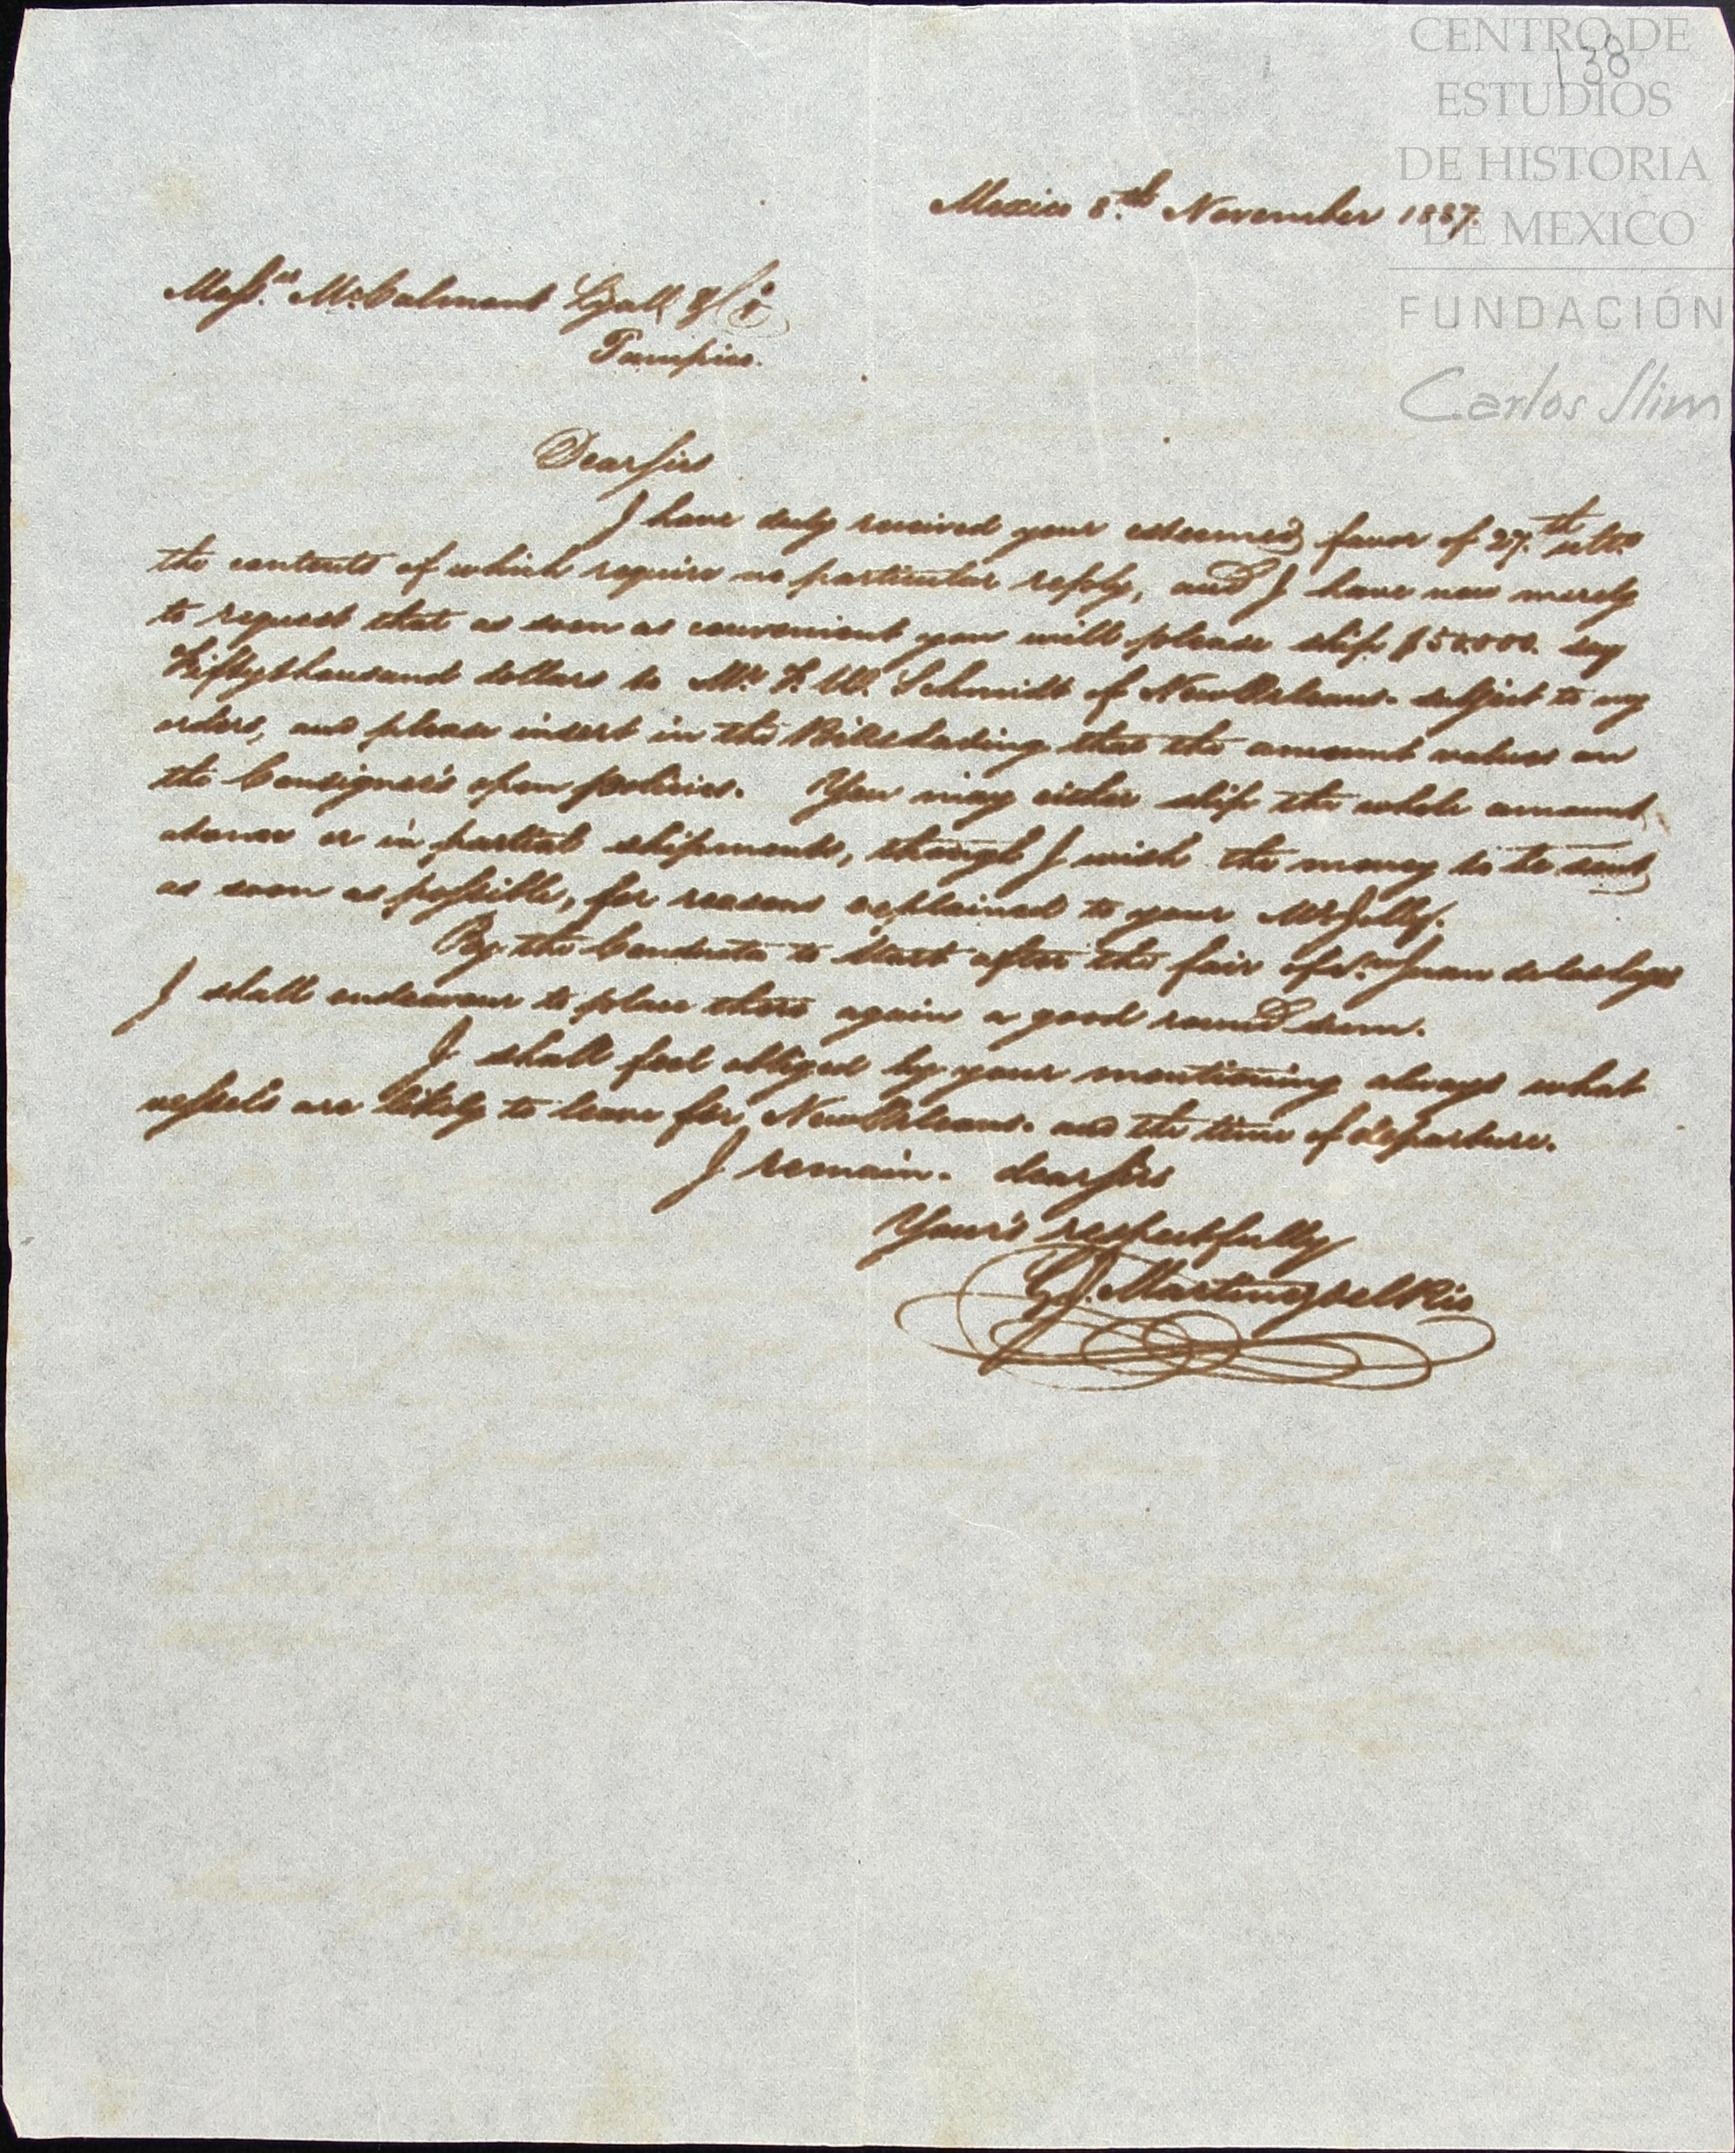 138
CENTRO DE
ESTUDIOS
DE HISTORIA
DE MEXICO
FUNDACIÓN
Carlos Slim
Mexico 8.th November 1837.
Mess.rs McCalmont Lyall & Co
Tampico.
Dear Sirs
I have duly received your esteemed favor of 27.th ulto
the contents of which require no particular reply, and I have now merely
to request that as soon as convenient you will please ship $50.000. say
Fiftythousand dollars to Mr. F. W. Schmidt of New Orleans. subject to my
orders, and please insert in the Bills lading that the amount values on
the Consignee's open policies. You may either ship the whole amount
atonce or in partial shipments, though I wish the money to be sent
as soon as possible, for reasons explained to your Mr Jolly.
By the Conducta to start after the fair of Sn Juan delos lagos
I shall endeavour to place there again a good round sum.
I shall feel obliged by your mentioning always what
vessels are likely to leave for New Orleans. and the time of departure.
I remain. dear Sirs
Your's respectfully
G. J. Martinez del Rio